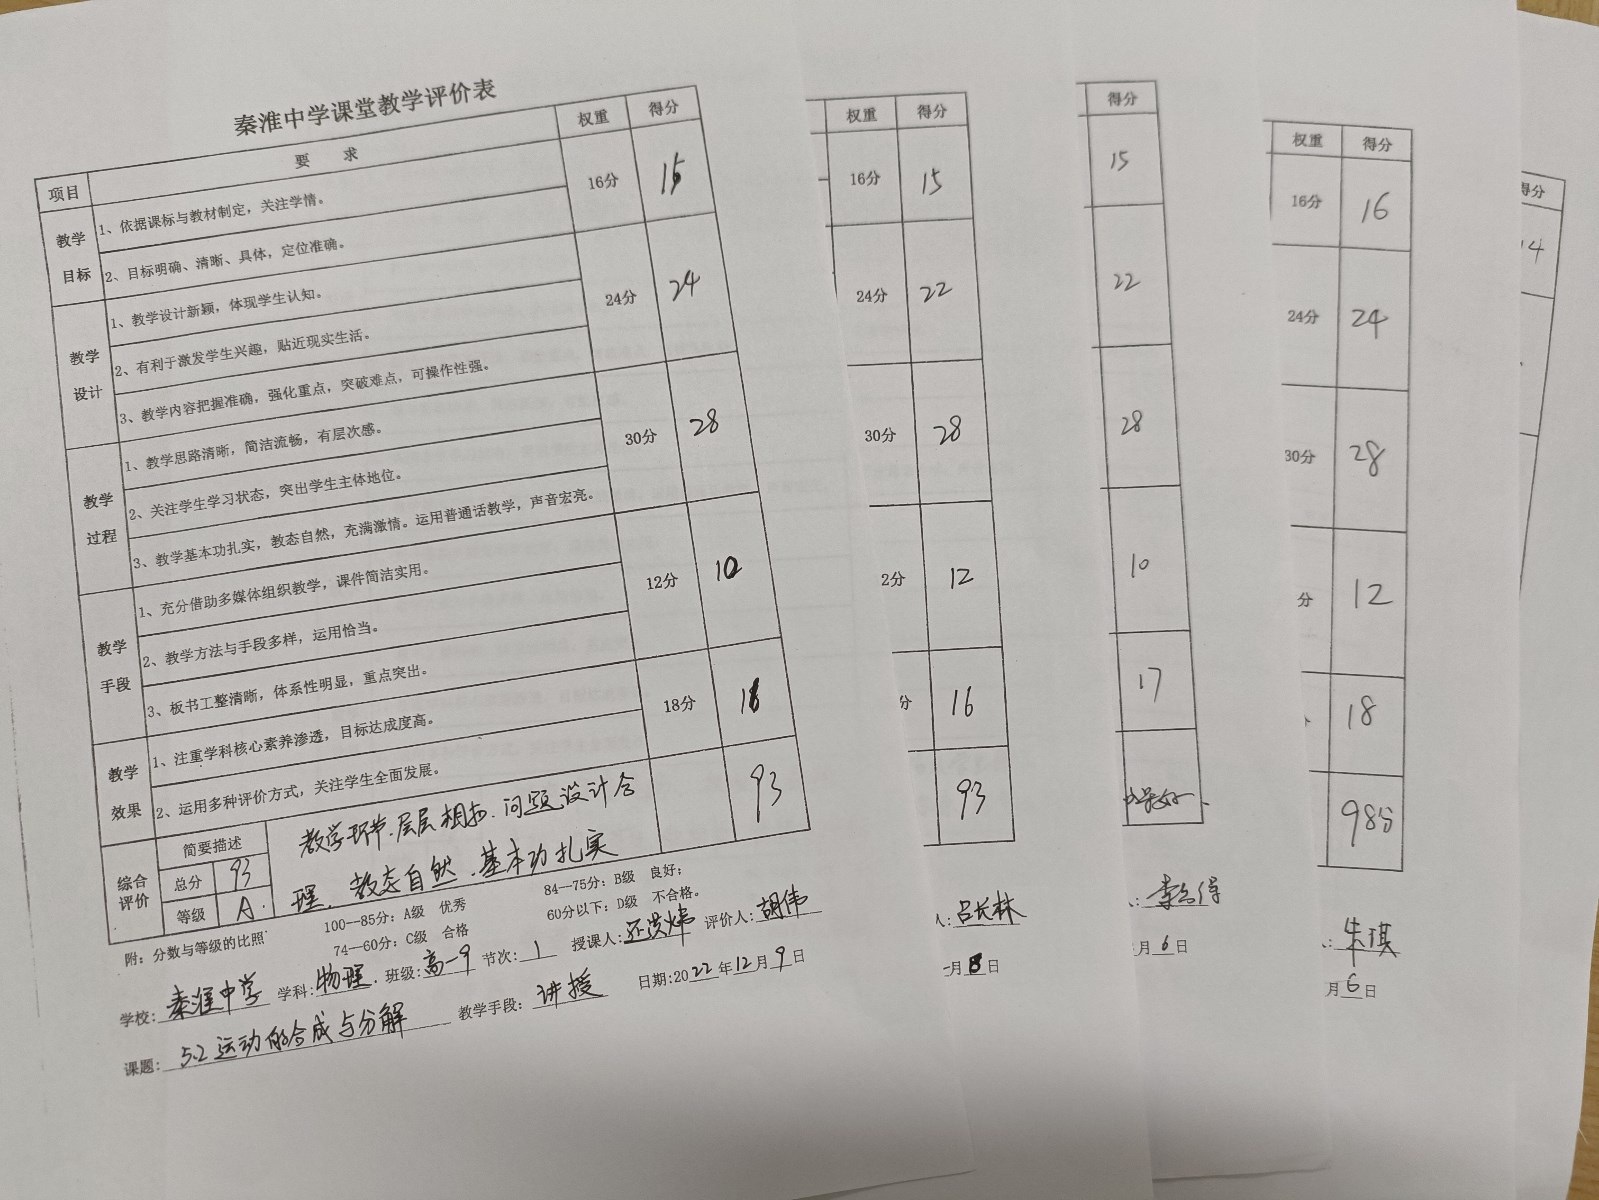 秦淮中学课堂教学评价表
项目 要 求 权重 得分
教学目标 1、依据课标与教材制定，关注学情。 16分 15
2、目标明确、清晰、具体，定位准确。
教学设计 1、教学设计新颖，体现学生认知。 24分 24
2、有利于激发学生兴趣，贴近现实生活。
3、教学内容把握准确，强化重点，突破难点，可操作性强。
教学过程 1、教学思路清晰，简洁流畅，有层次感。 30分 28
2、关注学生学习状态，突出学生主体地位。
3、教学基本功扎实，教态自然，充满激情。运用普通话教学，声音宏亮。
教学手段 1、充分借助多媒体组织教学，课件简洁实用。 12分 10
2、教学方法与手段多样，运用恰当。
3、板书工整清晰，体系性明显，重点突出。
教学效果 1、注重学科核心素养渗透，目标达成度高。 18分 16
2、运用多种评价方式，关注学生全面发展。
综合评价 简要描述 教学环节.层层相扣.问题设计合 93
总分 93 理.教态自然.基本功扎实
等级 A.
附：分数与等级的比照 100--85分：A级 优秀 84--75分：B级 良好；
74--60分：C级 合格 60分以下：D级 不合格。
学校:秦淮中学 学科:物理. 班级:高一9 节次:1 授课人: 评价人:胡伟
课题:5.2运动的合成与分解 教学手段:讲授 日期:2022年12月9日
权重 得分
16分 15
24分 22
30分 28
2分 12
分 16
93
人:吕长林
月8日
得分
15
22
28
10
17
月6日
权重 得分
16分 16
24分 24
30分 28
分 12
18
98分
朱琪
月6日
得分
14